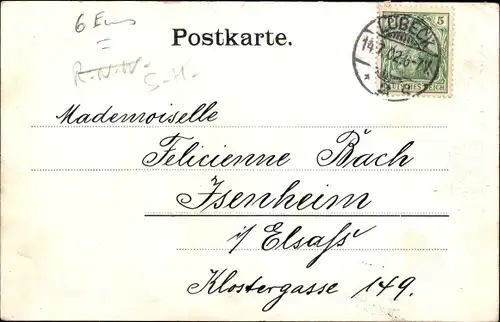 6 Euro
=
R.N.W.
S-H.
Postkarte.
LÜBECK
14.7.02.6-7V.
5
DEUTSCHES REICH
Mademoiselle
Felicienne Bach
Isenheim
i/ Elsaß
Klostergasse 149.